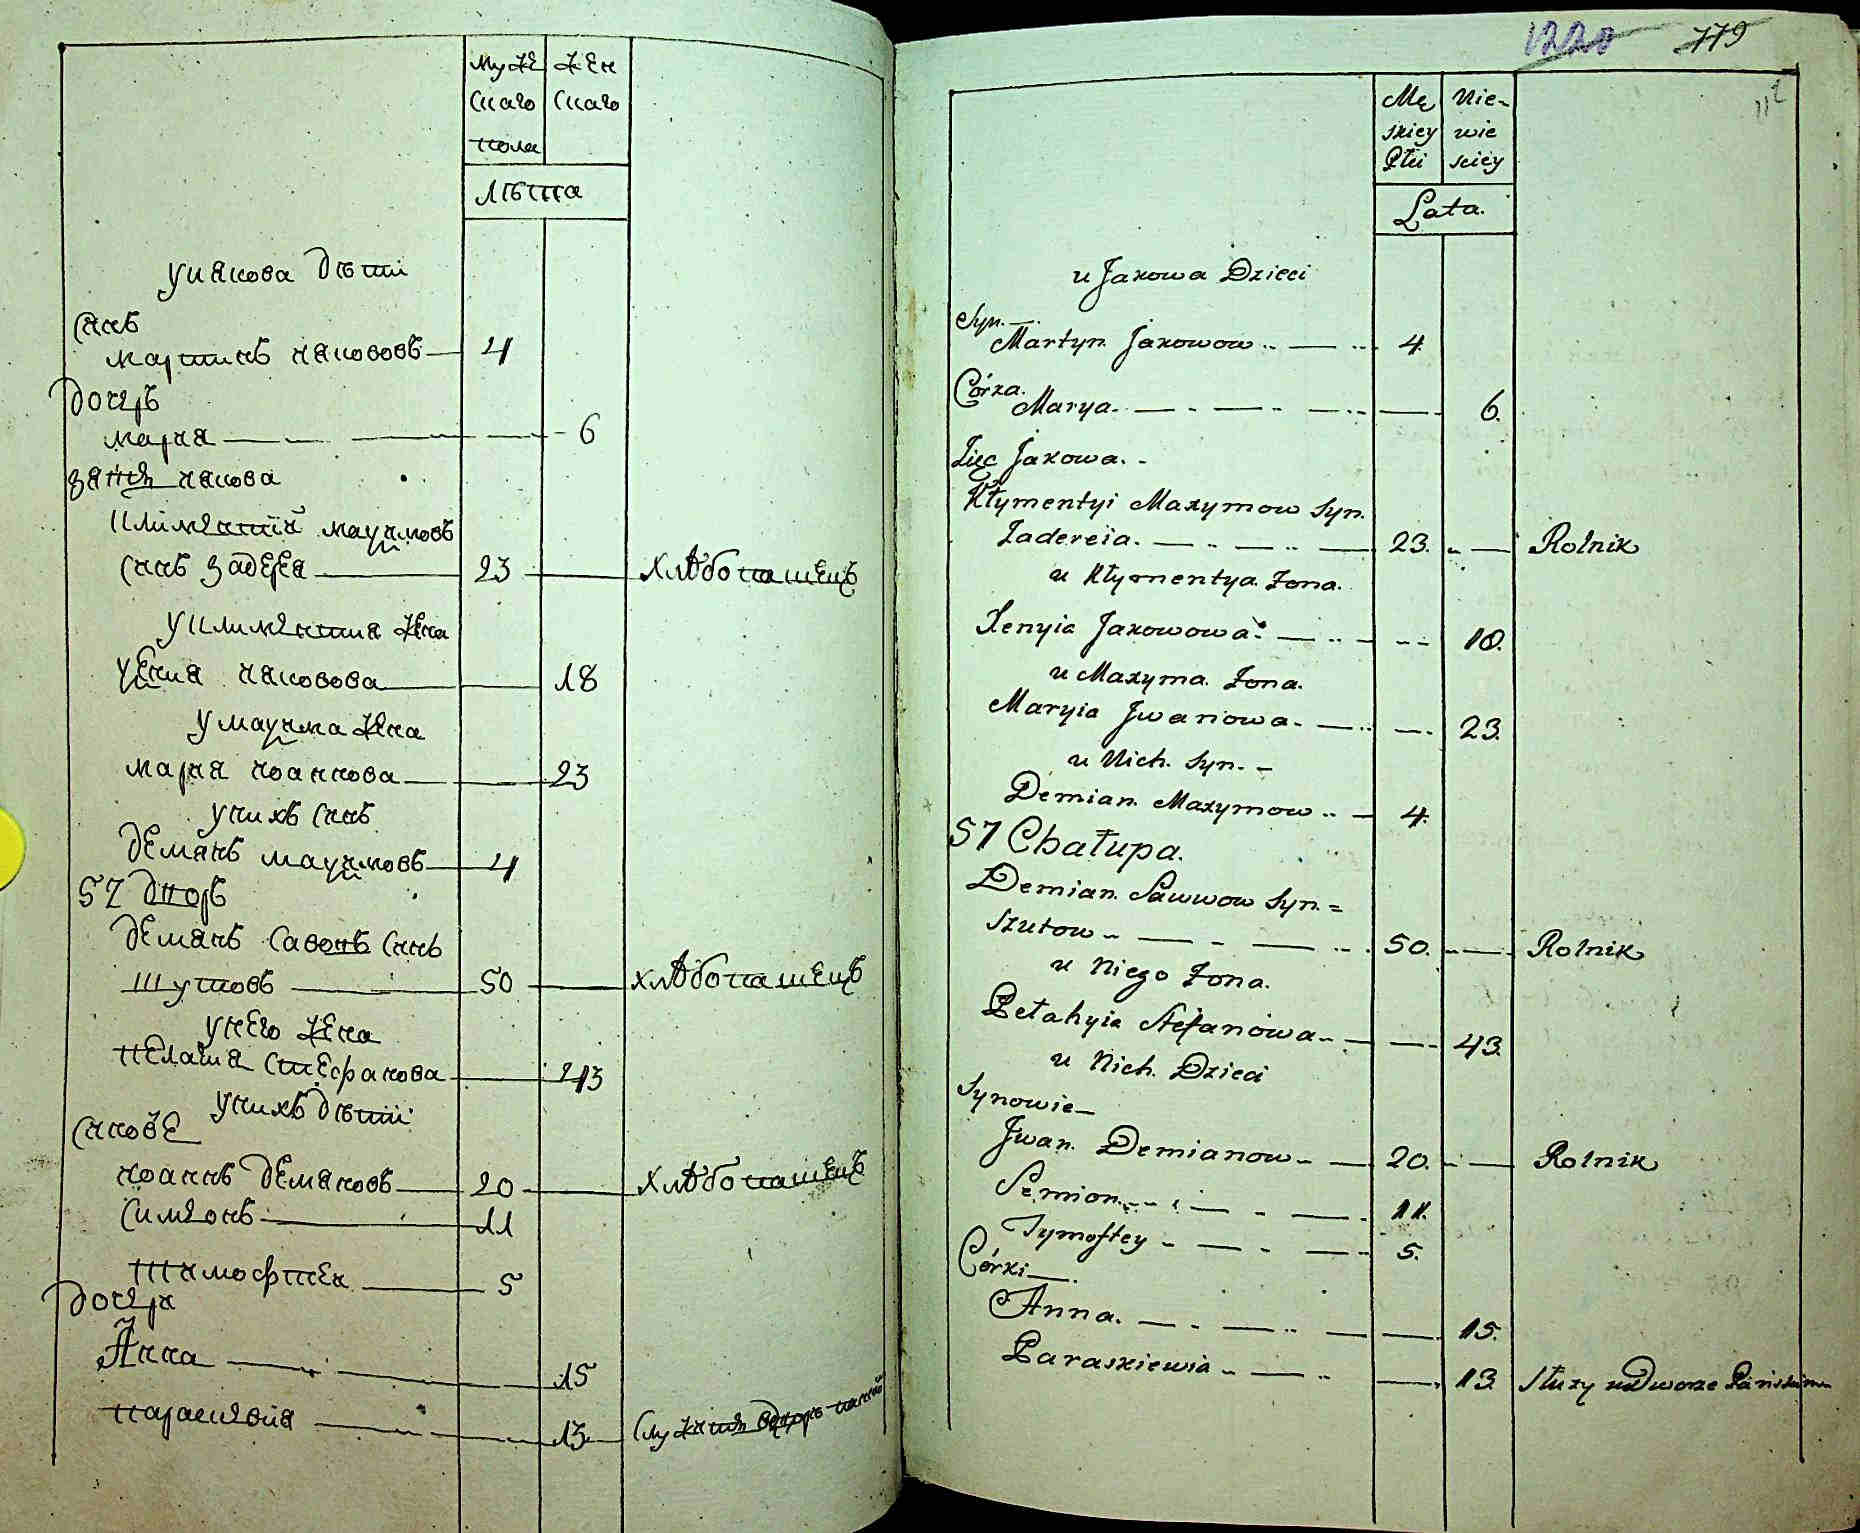 муже
скаго
пола
жен
скаго
лѣта
у иякова дѣти
Синъ
мартинъ иякововъ 4
дочеръ
мария 6
зять иякова
климентий мауимовъ
синъ задерея 23 хлѣбопашецъ
у климентия жена
уения иякововa 18
у мауима жена
мария иоаннова 23
у нихъ синъ
демянъ мауимовъ 4
57 дворъ
демянъ савонъ синъ
шутовъ 50 хлѣбопашецъ
у него жена
пелагия стефанова 43
у нихъ дѣти
синовѣ
иоаннъ демяновъ 20 хлѣбопашецъ
симеонъ 11
тимофтеи 5
дочери
Анна 15
параскевия 13 служитъ вдворѣ
1220 779
112
Mę
skiey
Płci
Nie-
wie
sciey
Lata.
u Jakowa Dzieci
Syn.
Martyn Jakowow 4.
Córka.
Marya. 6.
Zięc Jakowa.
Kłymentyi Maxymow Syn.
Zadereia. 23. Rolnik
u Kłymentya Zona.
Xenyia Jakowowa. 18.
u Maxyma Zona.
Maryia Jwanowa. 23.
u Nich Syn.
Demian Maxymow 4.
57 Chałupa.
Demian Sawwow Syn =
Szutow 50. Rolnik
u Niego Zona.
Pełahyia Stefanowa 43.
u Nich Dzieci
Synowie
Jwan Demianow 20. Rolnik
Semion 11.
Tymoftey 5.
Córki
Anna. 15.
Paraskiewia 13. Słuzy u Dworze Pańskim